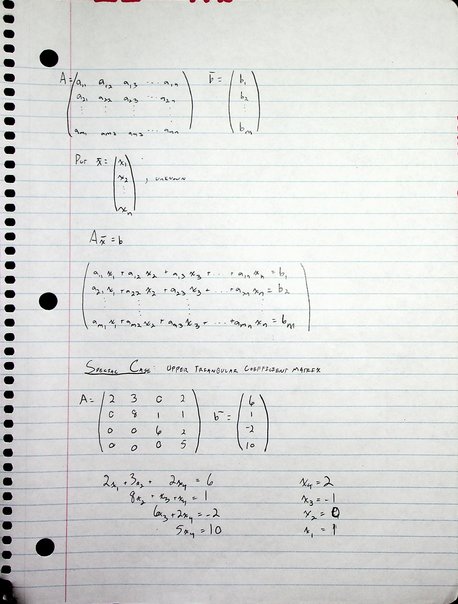 A = ( a11 a12 a13 ... a1n )  b̄ = ( b1 )
( a21 a22 a23 ... a2n )  ( b2 )
( ⋮ ⋮ ⋮ )  ( ⋮ )
( am1 am2 am3 ... amn )  ( bm )
Put x̄ = ( x1 )
( x2 ) , unknown
( ⋮ )
( xn )
A x̄ = b
( a11 x1 + a12 x2 + a13 x3 + ... + a1n xn = b1 )
( a21 x1 + a22 x2 + a23 x3 + ... + a2n xn = b2 )
( ⋮ ⋮ ⋮ )
( am1 x1 + am2 x2 + am3 x3 + ... + amn xn = bm )
Special Case: Upper Triangular Coefficient Matrix
A = ( 2 3 0 2 )  b̄ = ( 6 )
( 0 8 1 1 )  ( 1 )
( 0 0 6 2 )  ( -2 )
( 0 0 0 5 )  ( 10 )
2x1 + 3x2 + 2x4 = 6  x4 = 2
8x2 + x3 + x4 = 1  x3 = -1
6x3 + 2x4 = -2  x2 = 0
5x4 = 10  x1 = 1